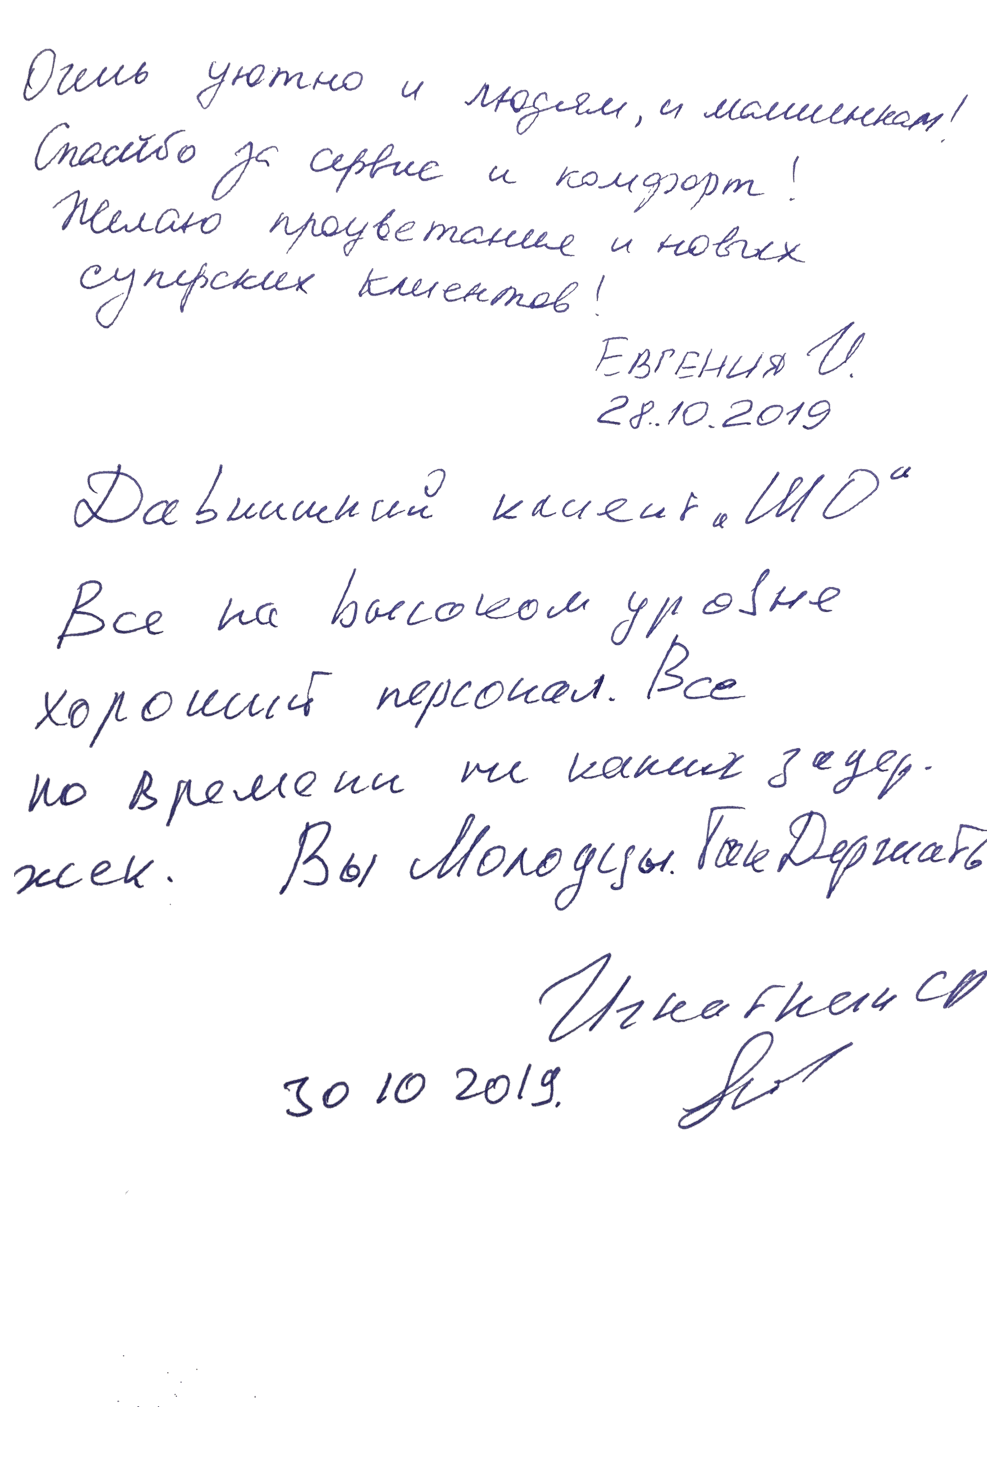 Очень уютно и людям, и машинкам!
Спасибо за сервис и комфорт!
Желаю процветания и новых
суперских клиентов!
ЕВГЕНИЯ И.
28.10.2019
Давнишний клиент „ШО“
Все на высоком уровне
хороший персонал. Все
по времени ни каких задер-
жек. Вы Молодцы. Так Держать
30 10 2019.